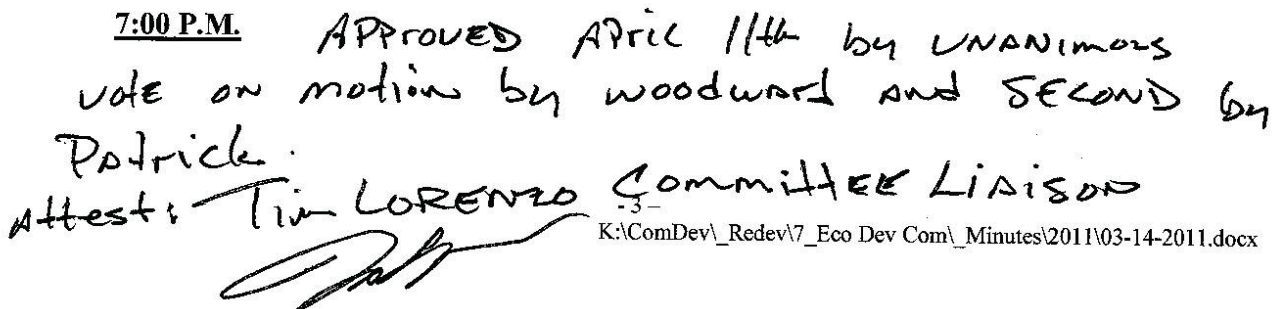 7:00 P.M. APProved April 11th by UNANimous
vote on motion by woodward and SECOND by
Patrick.
Attest: Tim LORENZO Committee Liaison
- 3 –
K:\ComDev\_Redev\7_Eco Dev Com\_Minutes\2011\03-14-2011.docx